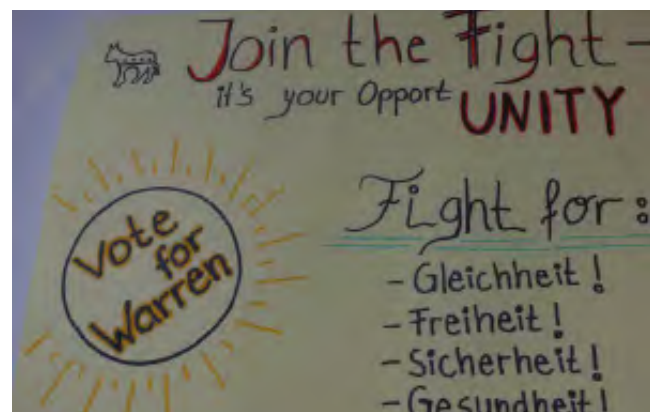 Join the Fight -
it's your Opport UNITY
Vote
for
Warren
Fight for :
- Gleichheit !
- Freiheit !
- Sicherheit !
- Gesundheit !